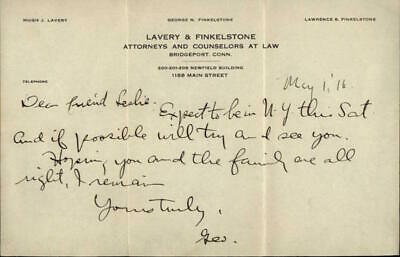 HUGH J. LAVERY GEORGE N. FINKELSTONE LAWRENCE S. FINKELSTONE
LAVERY & FINKELSTONE
ATTORNEYS AND COUNSELORS AT LAW
BRIDGEPORT, CONN.
200-201-205 NEWFIELD BUILDING
1188 MAIN STREET
TELEPHONE
May 1, '16
Dear friend Leslie: Expect to be in N.Y this Sat
and if possible will try and see you.
Hoping you and the family are all
right, I remain
Yours truly,
Geo.